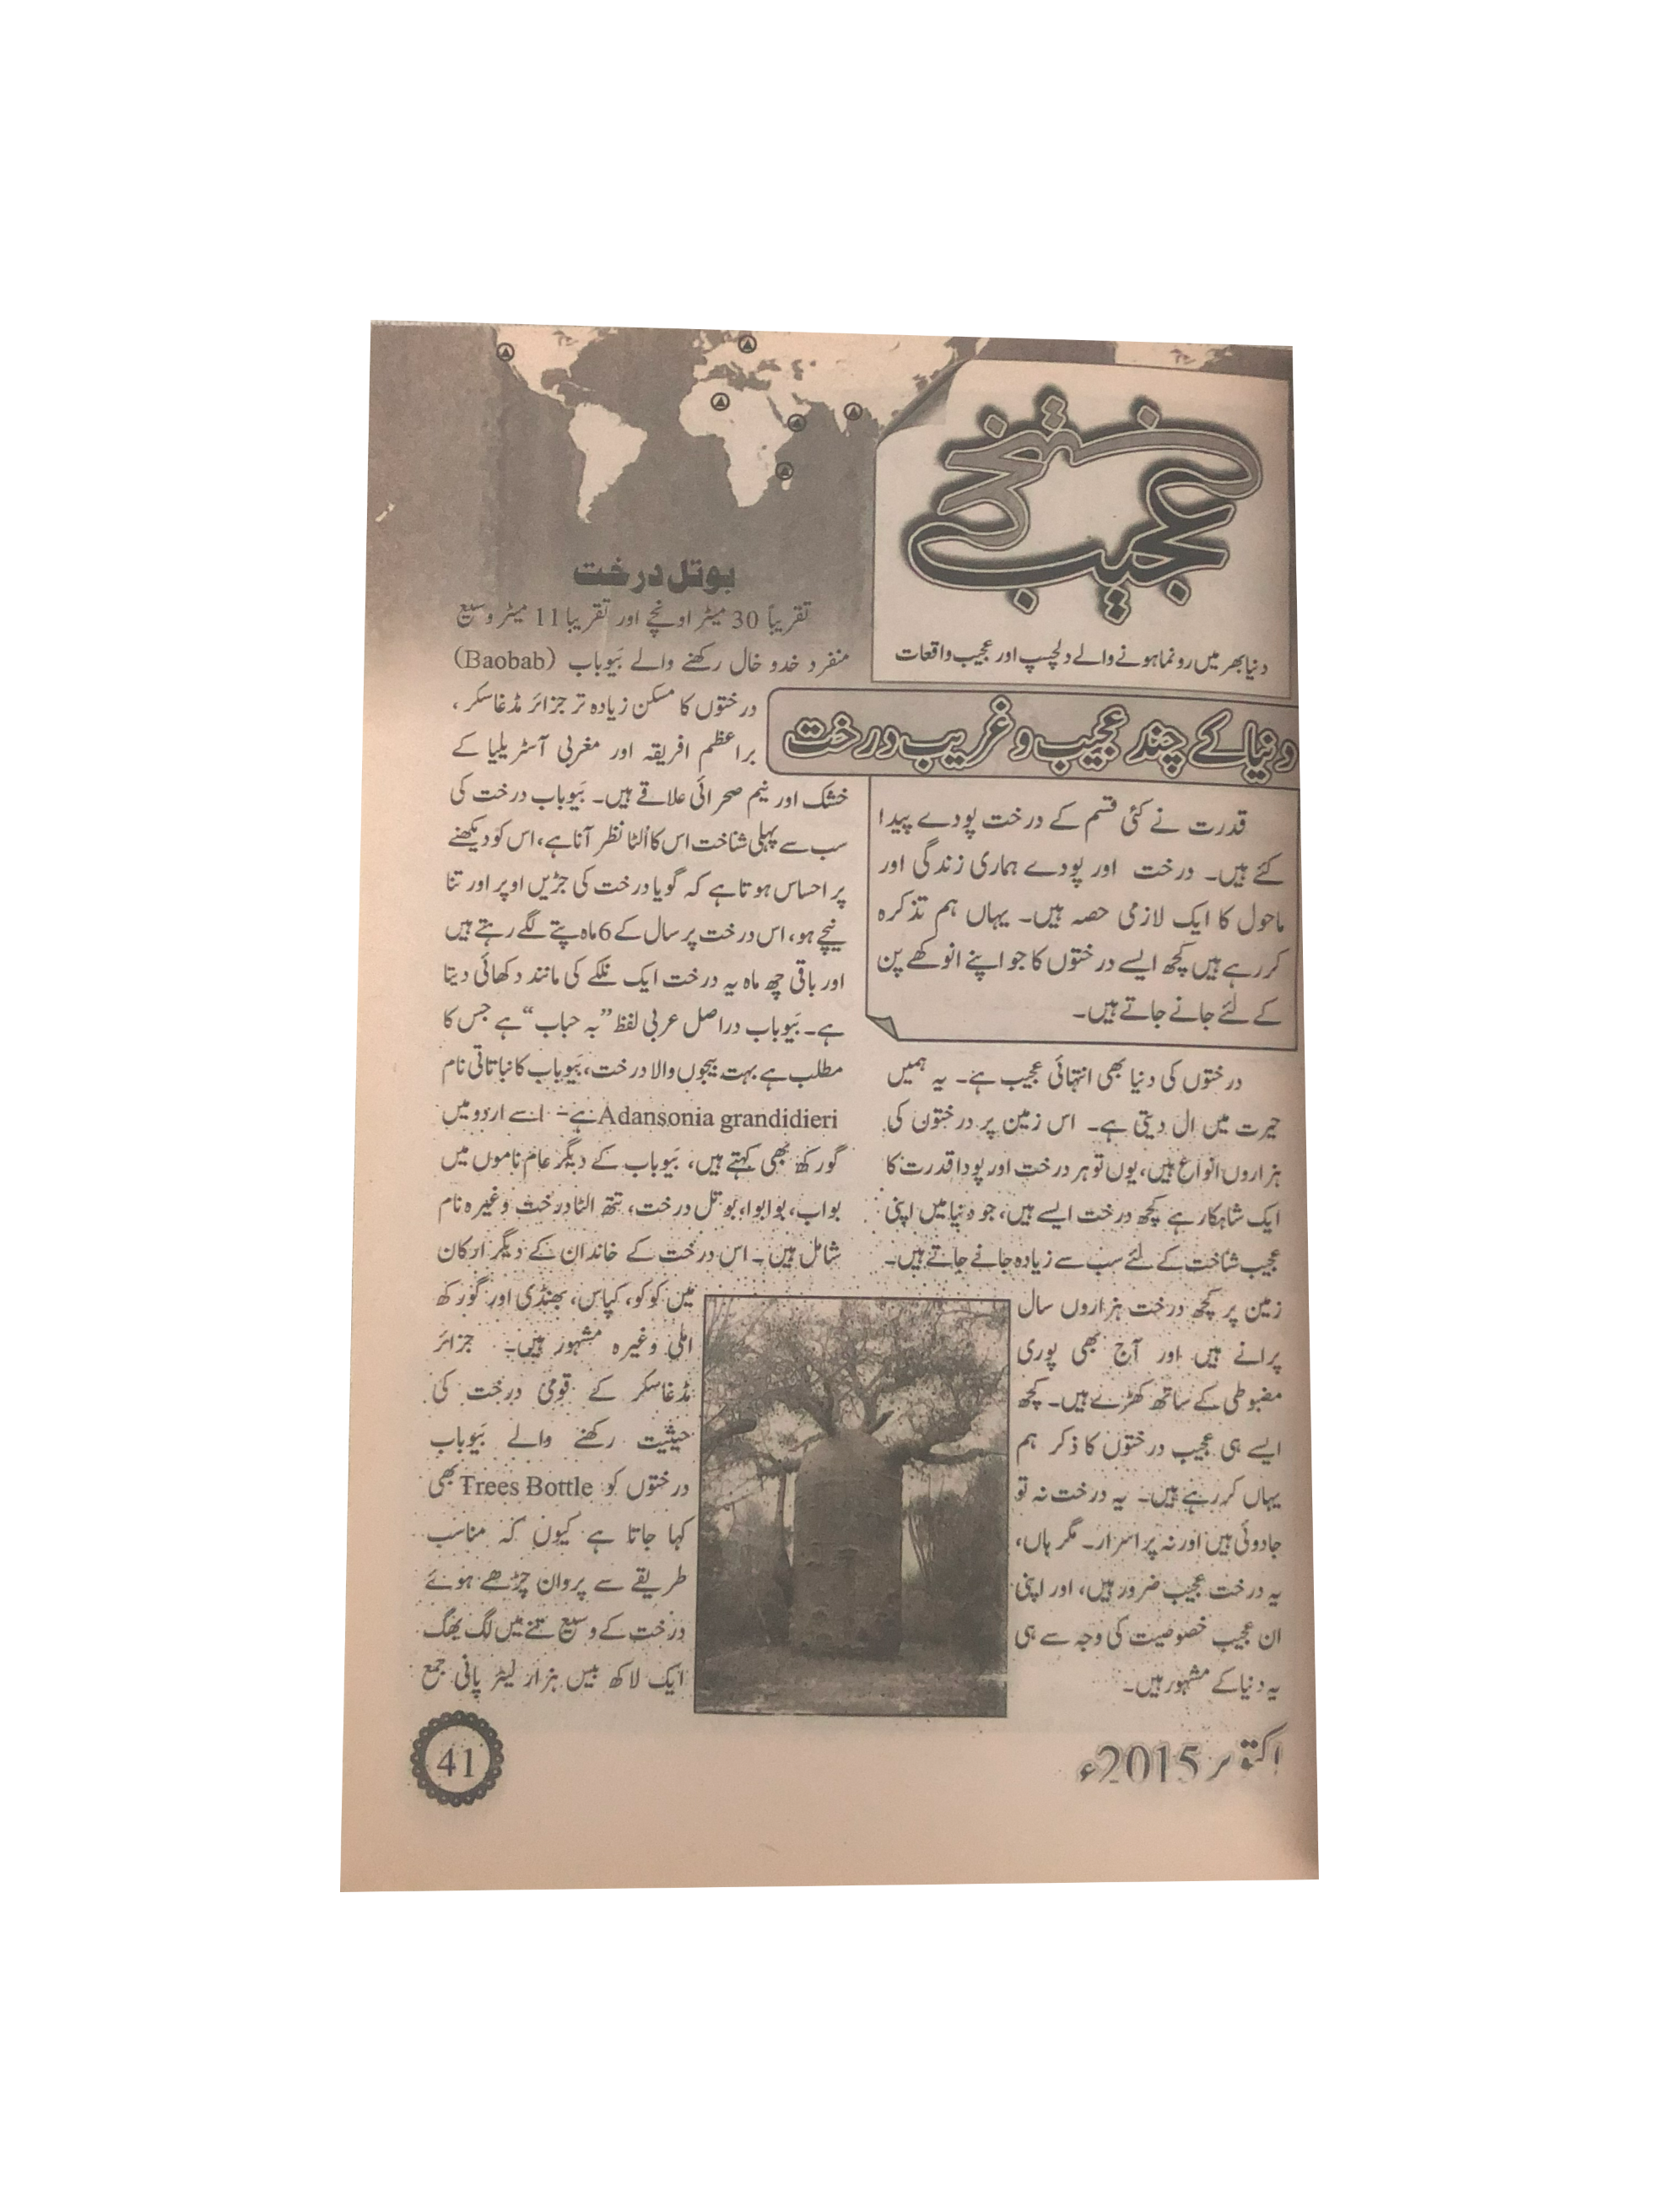 عجیب
دنیا بھر میں رونما ہونے والے دلچسپ اور عجیب واقعات
دنیا کے چند عجیب و غریب درخت
قدرت نے کئی قسم کے درخت پودے پیدا
کئے ہیں۔ درخت اور پودے ہماری زندگی اور
ماحول کا ایک لازمی حصہ ہیں۔ یہاں ہم تذکرہ
کررہے ہیں کچھ ایسے درختوں کا جو اپنے انوکھے پن
کے لئے جانے جاتے ہیں۔
درختوں کی دنیا بھی انتہائی عجیب ہے۔ یہ ہمیں
حیرت میں ال دیتی ہے۔ اس زمین پر درختون کی
ہزاروں انواع ہیں، یوں تو ہر درخت اور پودا قدرت کا
ایک شاہکار ہے کچھ درخت ایسے ہیں، جو دنیا میں اپنی
عجیب شناخت کے لئے سب سے زیادہ جانے جاتے ہیں۔
زمین پر کچھ درخت ہزاروں سال
پرانے ہیں اور آج بھی پوری
مضبوطی کے ساتھ کھڑے ہیں۔ کچھ
ایسے ہی عجیب درختوں کا ذکر ہم
یہاں کررہے ہیں۔ یہ درخت نہ تو
جادوئی ہیں اور نہ پراسرار۔ مگر ہاں،
یہ درخت عجیب ضرور ہیں، اور اپنی
ان عجیب خصوصیت کی وجہ سے ہی
یہ دنیا کے مشہور ہیں۔
بوتل درخت
تقریباً 30 میٹر اونچے اور تقریبا 11 میٹر وسیع
منفرد خدو خال رکھنے والے بَیوباب (Baobab)
درختوں کا مسکن زیادہ تر جزائر مڈغاسکر،
براعظم افریقہ اور مغربی آسٹریلیا کے
خشک اور نیم صحرائی علاقے ہیں۔ بَیوباب درخت کی
سب سے پہلی شناخت اس کا اُلٹا نظر آنا ہے، اس کو دیکھنے
پر احساس ہوتا ہے کہ گویا درخت کی جڑیں اوپر اور تنا
نیچے ہو، اس درخت پر سال کے 6 ماہ پتے لگے رہتے ہیں
اور باقی چھ ماہ یہ درخت ایک نلکے کی مانند دکھائی دیتا
ہے۔ بَیوباب دراصل عربی لفظ ”بہ حباب“ ہے جس کا
مطلب ہے بہت بیجوں والا درخت، بَیوباب کا نباتاتی نام
Adansonia grandidieri ہے۔ اسے اردو میں
گورکھ بھی کہتے ہیں، بَیوباب کے دیگر عام ناموں میں
بواب، بوابوا، بوتل درخت، تتھ الٹا درخت وغیرہ نام
شامل ہیں۔ اس درخت کے خاندان کے دیگر ارکان
میں کوکو، کپاس، بھنڈی اور گورکھ
املی وغیرہ مشہور ہیں۔ جزائر
مڈغاسکر کے قومی درخت کی
حیثیت رکھنے والے بَیوباب
درختوں کو Trees Bottle بھی
کہا جاتا ہے کیوں کہ مناسب
طریقے سے پروان چڑھے ہوئے
درخت کے وسیع تنے میں لگ بھگ
ایک لاکھ بیس ہزار لیٹر پانی جمع
اکتوبر 2015ء
41